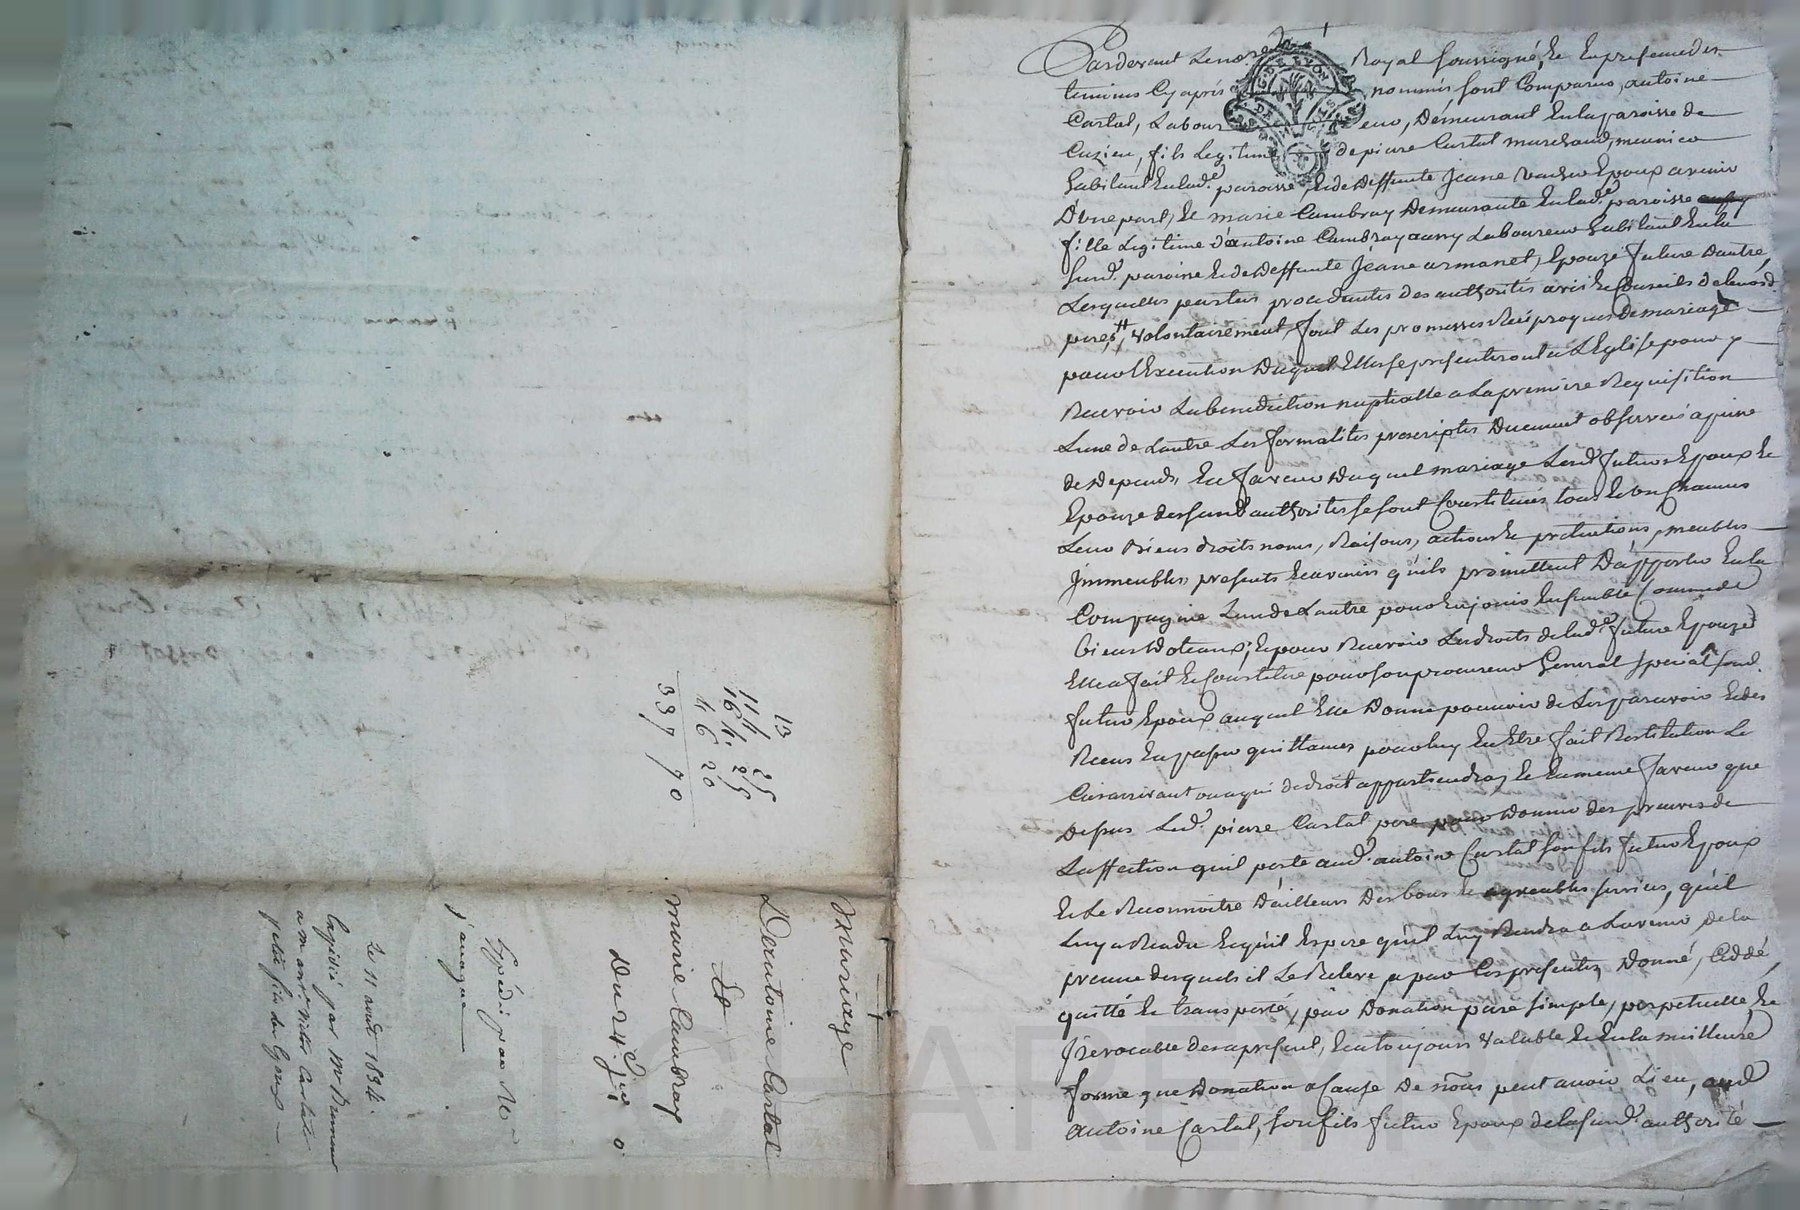 Pardevant Le no.re Royal soussigné, Et En presence des
temoins Cy apres nommés sont Comparus, antoine
Cartal, Laboureur, Demeurant En la paroisse de
Cuzieu, fils Legitime de pierre Cartal marchand, meunier
habitant En lad.e paroisse, Et de deffunte Jeane Epoux avenir
D'une part, Et marie Cambray Demeurante En lad.e paroisse
fille Legitime d'antoine Cambray aussy Laboureur habitant En la
susd. paroisse Et de deffunte Jeane armanet, Epouze future Dautre,
Lesquelles parties procedantes des authorités avis Et Conseils de leursd.
peres, volontairement, font Les promesses Reciproques de mariage
pour l'Execution Duquel Elles se presenteront a L'Eglise pour y
Recevoir La benediction nuptialle a La premiere Requisition
Lune de Lautre Les formalités prescriptes Duement observés a peine
de Depends, En faveur Duquel mariage Lesd. futurs Epoux Et
Epouze desusd authorités se sont Constitués tous Et un Chacuns
Leurs biens droits noms, Raisons, actions Et pretentions, meubles
Immeubles, presents Et avenirs qu'ils promettent D'apporter En la
Compagnie Lun de Lautre pour En jouir Ensemble Comme de
biens Dotaux; Et pour Recevoir Les droits de lad.e future Epouze
Elle a fait Et Constitué pour son procureur General Special sond.
futur Epoux auquel Elle Donne pouvoir de Les percevoir Et des
Reçus En passer quittances pour luy En Etre fait Restitution Le
Cas arrivant ou a qui de droit appartiendra, Et En meme faveur que
Depuis Led. pierre Cartal pere pour Donner des preuves de
Laffection quil porte aud. antoine Cartal son fils futur Epoux
Et Le Reconnoitre D'ailleurs Des bons Et agreables services, qu'il
Luy a Rendu Et qu'il Espere qu'il Luy Rendra a Lavenir de la
preuve desquels il Le Releve a par Ces presentes Donné, Ceddé,
quitté Et transporté, par Donation pure simple, perpetuelle, Et
Irevocable des a present, Et a toujours valable Et En la meilleure
forme que Donation a Cause De nous peut avoir Lieu, aud
Antoine Cartal, son fils futur Epoux de la susd. authorité
Mariage
D'antoine Cartal
Et
marie Cambray
Du 24.
Expédié par Mo
j'annexe
Le 11 aout 1834.
Expédié par Mr
a m antoine victor Cartal
petit fils des Epoux
13
114 25
164. 25
46 20
337 70